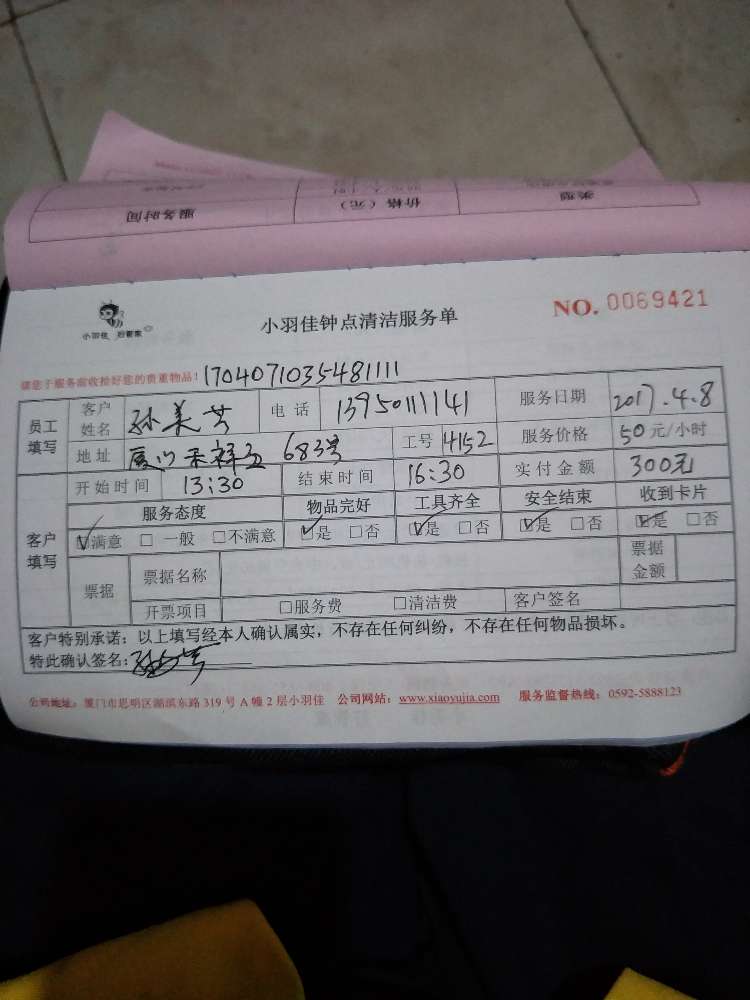 类型
价格（元）
服务时间
小羽佳 好管家
小羽佳钟点清洁服务单
NO. 0069421
请您于服务前收拾好您的贵重物品！17040710354811111
员工填写
客户姓名 孙美芳 电话 13950111141 服务日期 2017.4.8
地址 厦门禾祥西 683号 工号 4152 服务价格 50元/小时
客户填写
开始时间 13:30 结束时间 16:30 实付金额 300元
服务态度 物品完好 工具齐全 安全结束 收到卡片
☑满意 □一般 □不满意 ☑是 □否 ☑是 □否 ☑是 □否 ☑是 □否
票据 票据名称 票据金额
开票项目 □服务费 □清洁费 客户签名
客户特别承诺：以上填写经本人确认属实，不存在任何纠纷，不存在任何物品损坏。
特此确认签名：
公司地址：厦门市思明区湖滨东路 319 号 A 幢 2 层小羽佳 公司网站：www.xiaoyujia.com 服务监督热线：0592-5888123